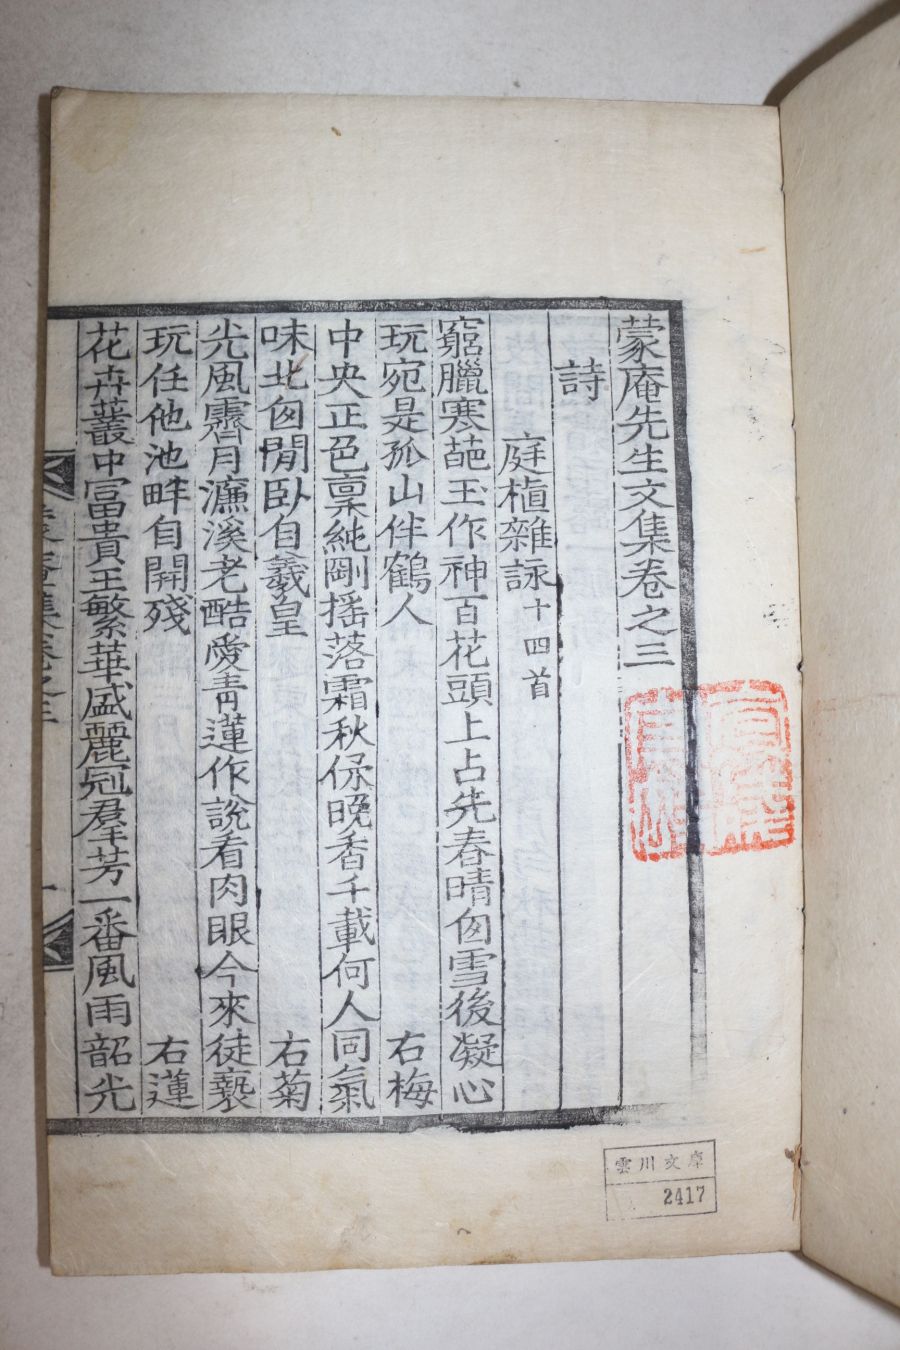 蒙庵先生文集卷之三
詩
庭植雜詠十四首
窮臘寒葩玉作神百花頭上占先春晴囱雪後凝心
玩宛是孤山伴鶴人 右梅
中央正色稟純剛搖落霜秋保晚香千載何人同氣
味北囱閒臥自羲皇 右菊
光風霽月濂溪老酷愛青蓮作說看肉眼今來徒褻
玩任他池畔自開殘 右蓮
花卉叢中富貴王繁華盛麗冠羣芳一番風雨韶光
蒙庵集卷之三 一
雲川文庫
2417